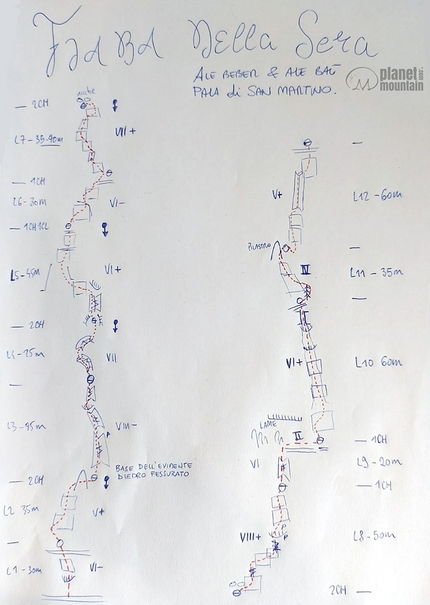 FIABA NELLA SERA
ALE BEBER & ALE BAÙ
PALA di SAN MARTINO.
planet
mountain
.com
— 2CH
L7-35-40m
VII+
— 1CH
L6-30m
VI-
— 1CH 1CL
L5-45m
VI+
— 2CH
L4-25m
VII
—
L3-45m
VIII-
BASE DELL'EVIDENTE
DIEDRO FESSURATO
— 2CH
L2 35m
V+
—
L1-30m
VI-
—
—
V+
L12-60m
PILASTRO
—
IV
L11-35m
—
VI+
L10 60m
LAME
II
— 1CH
VI
L9-20m
— 1CH
VIII+
L8-50m
2CH —